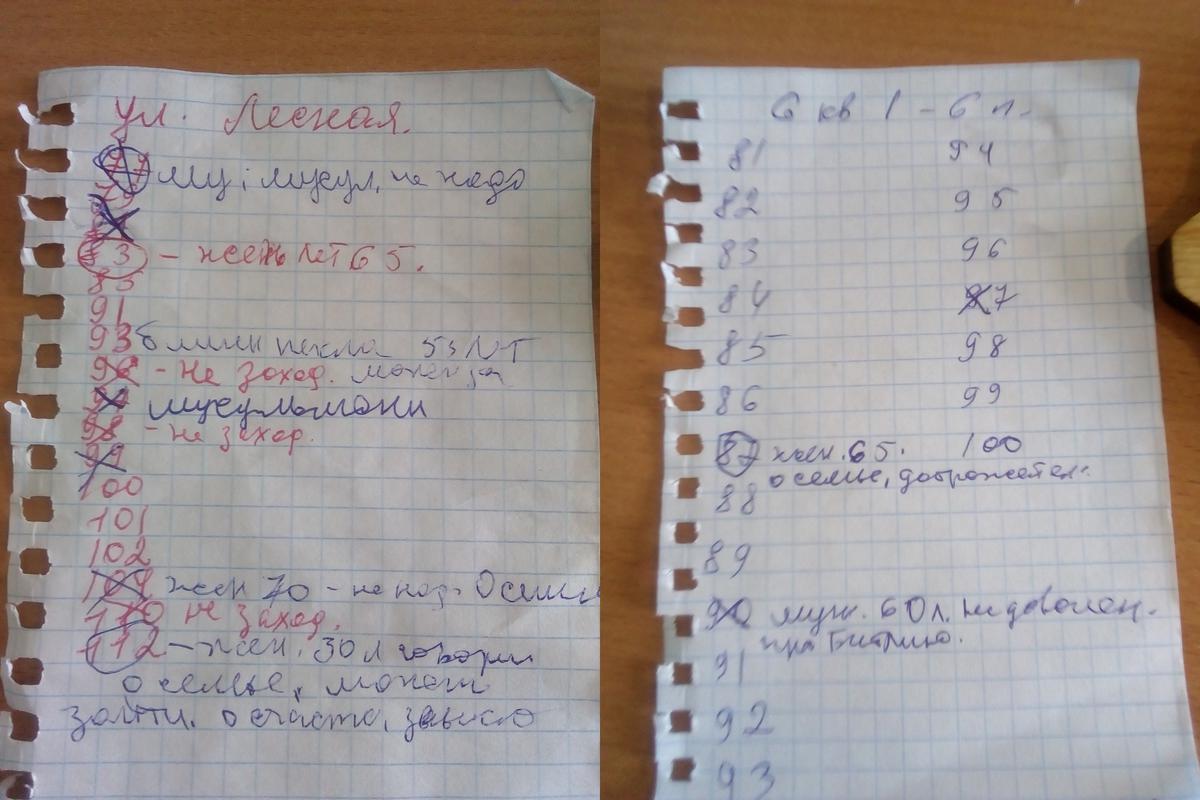 ул. Лесная.
77 му, мусул, не надо
79
83 - жень лет 65.
85
91
93 блины пекла 53 лет
96 - Не заход. может за
мусульмани
98 - не заход.
99
100
101
102
109 жен 70 - не над. О семи
110 не заход.
112 - жен. 30 л говорим
о семье, может
зайти. о счасте,
6 кв 1 - 6 п.
81 94
82 95
83 96
84 97
85 98
86 99
87 жен. 65. 100
о семье, доброжетел.
88
89
90 муж. 60 л. не доволен.
про
91
92
93